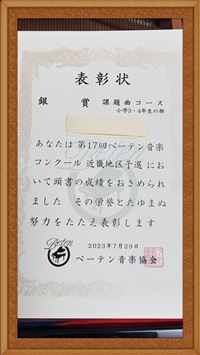 表彰状
銀 賞 課題曲コース
小学3・4年生の部
あなたは 第17回ベーテン音楽
コンクール 近畿地区予選 にお
いて頭書の成績をおさめられ
ました その栄誉とたゆまぬ
努力をたたえ表彰します
Beten
2023年7月29日
ベーテン音楽協会